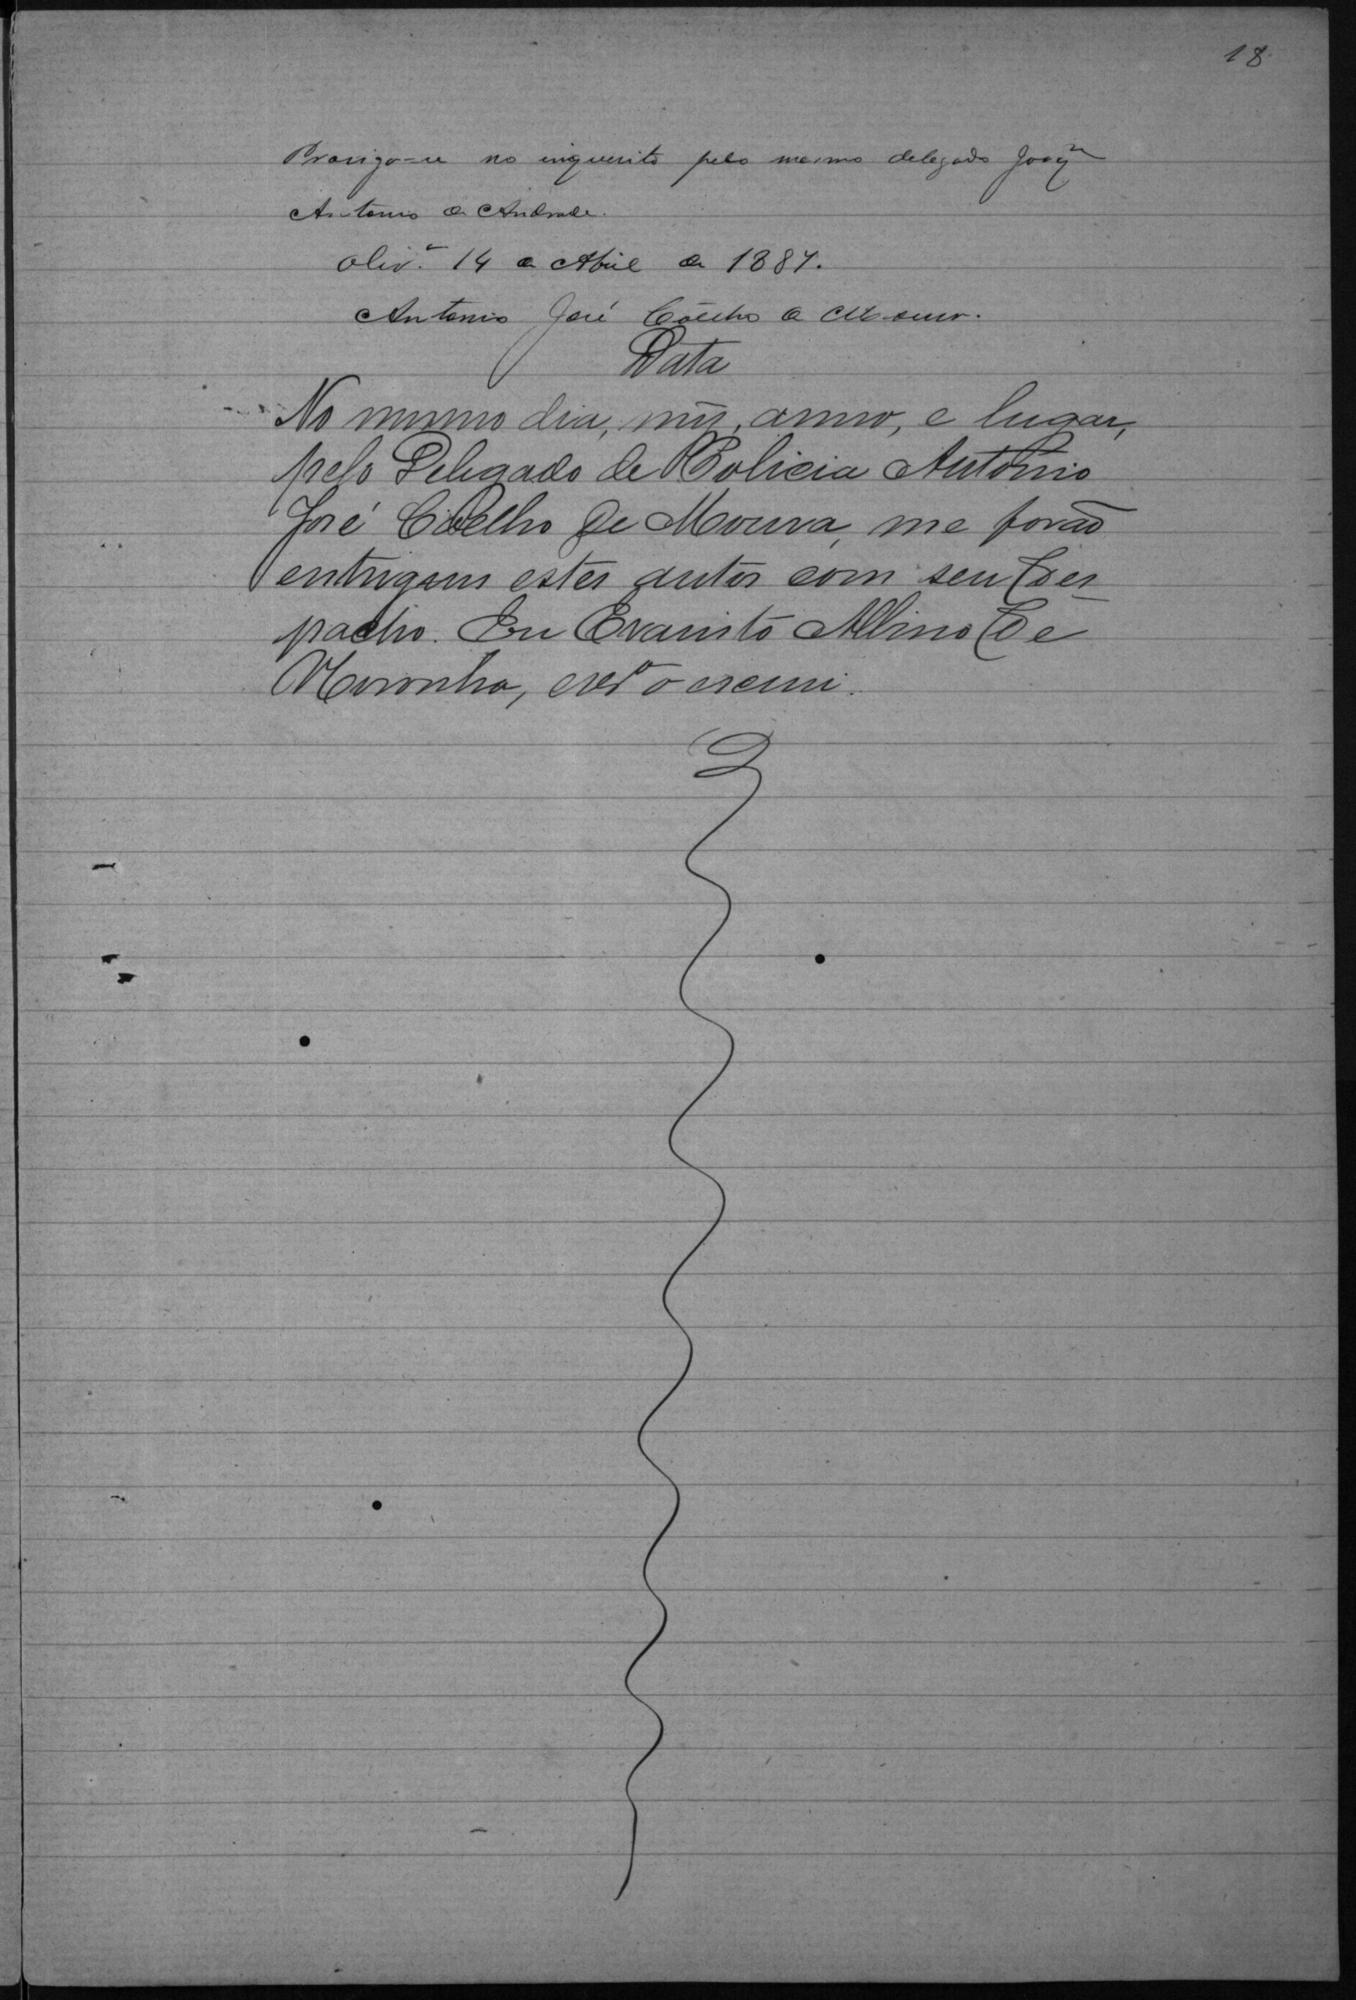 18
Prosiga-se no inquerito pelo mesmo delegado Joaqm
Antonio de Andrade.
Olivra 14 de Abril de 1887.
Antonio José Coêlho de Moura.
Data
No mesmo dia, mez, anno, e lugar,
pelo Delegado de Policia Antonio
José Coelho de Moura, me forão
entregues estes autos com seu des
pacho. Eu Evaristo Albino de
Noronha, escrm o escrevi.